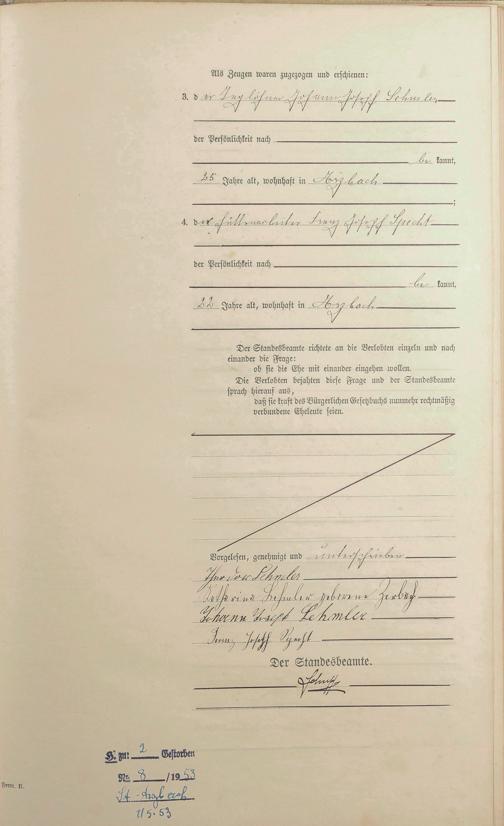 Als Zeugen waren zugezogen und erschienen:
3. der Taglöhner Johann Josef Lehmler
der Persönlichkeit nach
be kannt,
25 Jahre alt, wohnhaft in Arzbach
;
4. der Hüttenarbeiter Franz Joseph Specht
der Persönlichkeit nach
be kannt,
22 Jahre alt, wohnhaft in Arzbach
Der Standesbeamte richtete an die Verlobten einzeln und nach
einander die Frage:
ob sie die Ehe mit einander eingehen wollen.
Die Verlobten bejahten diese Frage und der Standesbeamte
sprach hierauf aus,
daß sie kraft des Bürgerlichen Gesetzbuchs nunmehr rechtmäßig
verbundene Eheleute seien.
Vorgelesen, genehmigt und unterschrieben
Theodor Lehmler
Katharina Lehmler geborene Zerbach
Johann Josef Lehmler
Franz Joseph Specht
Der Standesbeamte.
H. zu: 2 Gestorben
No 8 /1953
St. Arzbach
7/5.53